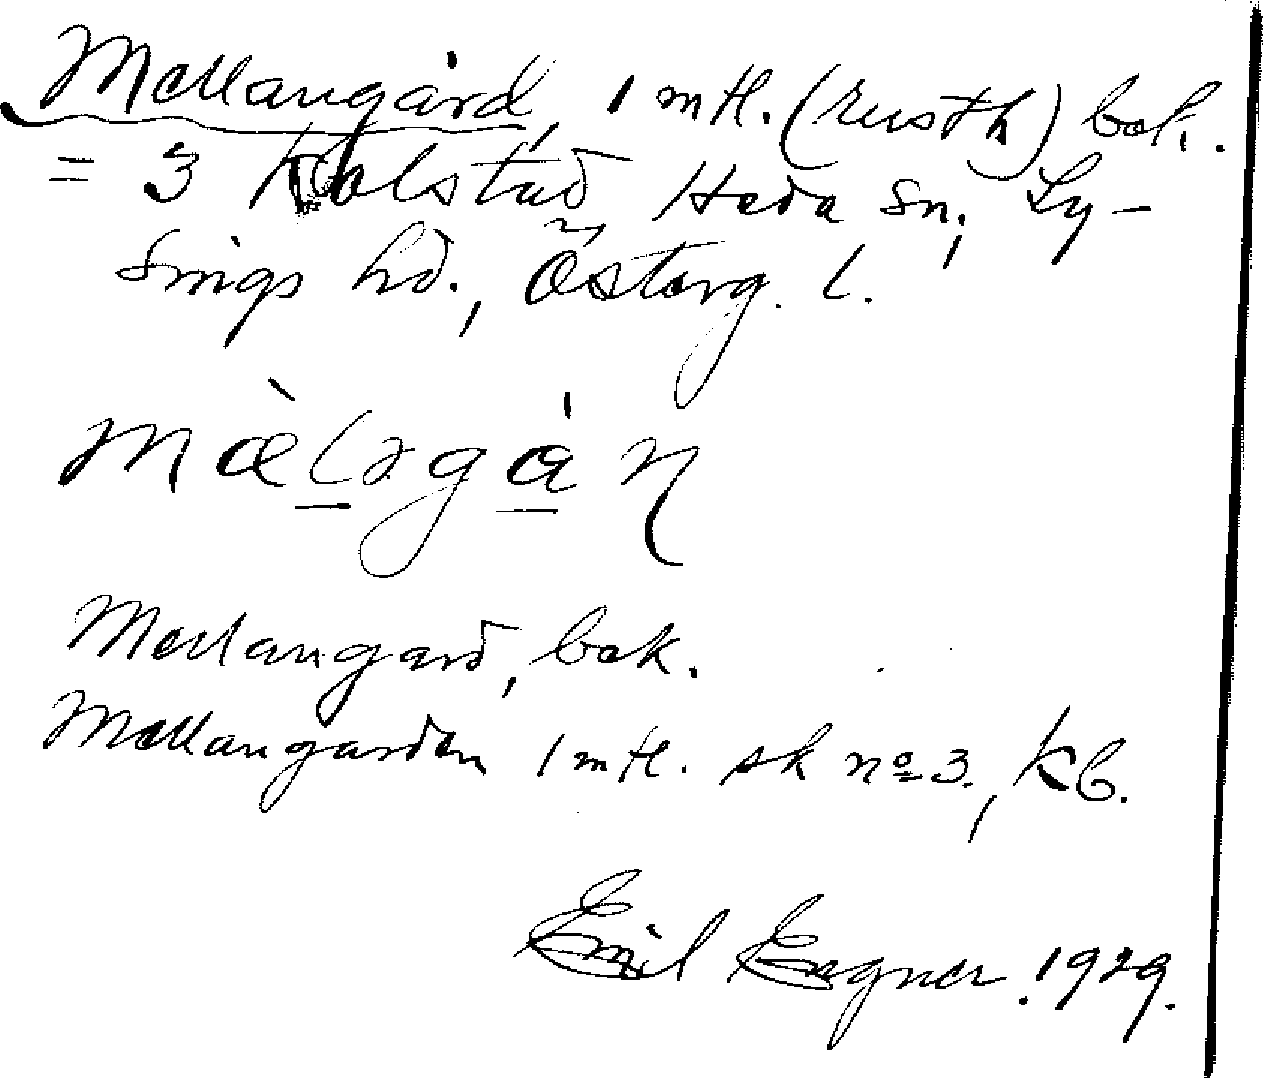 Mellangård, 1 mtl. (rusth) bok.
= 3 Kolstad, Heda sn, Ly-
sings hd., Österg. l.
mæ̀ləgàɳ
Mellangard, bok.
Mellangarden 1 mtl. sk nº 3., Kb.
Emil Eegner. 1929.